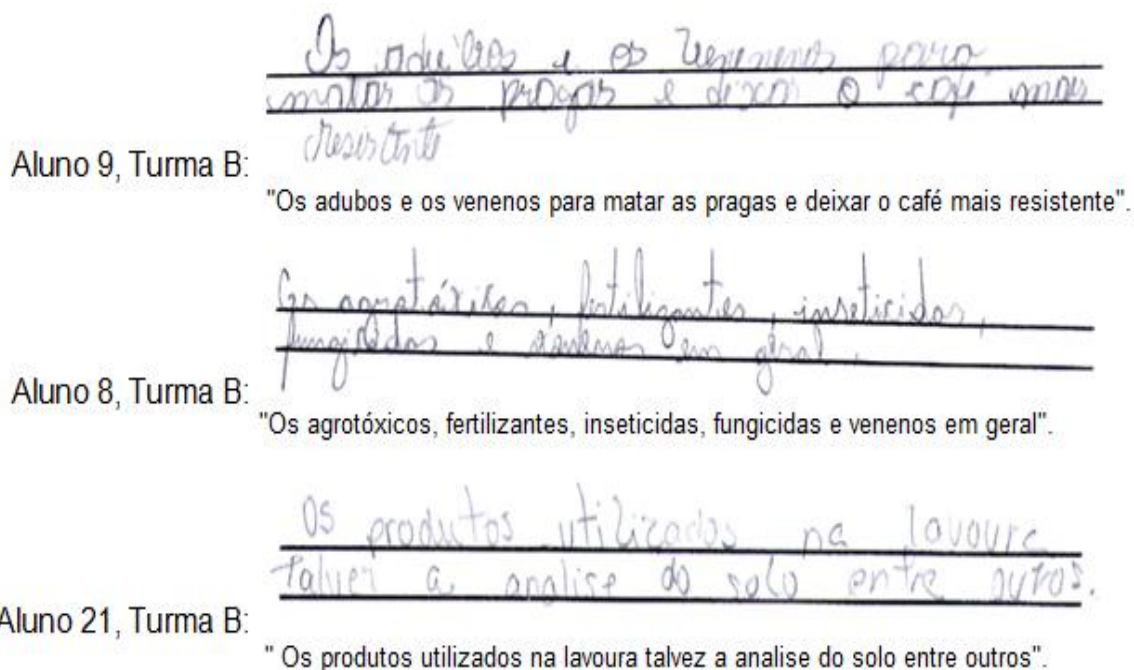 Os adubos e os venenos para
matar as pragas e dexar o café mais
resistente
Aluno 9, Turma B:
"Os adubos e os venenos para matar as pragas e deixar o café mais resistente".
Os agrotóxicos, fertilizantes, inseticidas,
fungicidas e venenos em géral.
Aluno 8, Turma B:
"Os agrotóxicos, fertilizantes, inseticidas, fungicidas e venenos em geral".
Os produtos utilizados na lavoura
Talvez a analise do solo entre outros.
Aluno 21, Turma B:
" Os produtos utilizados na lavoura talvez a analise do solo entre outros".